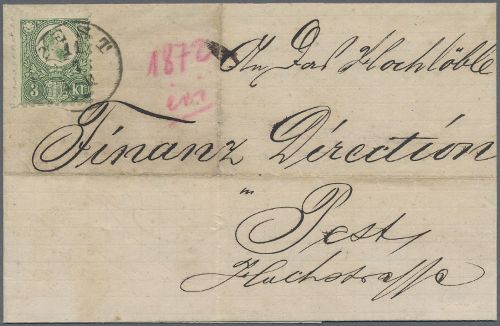 PEST
3 kr.
1872
An Das Hochlöbl
Finanz Direction
in
Pest,
Hochstrasse